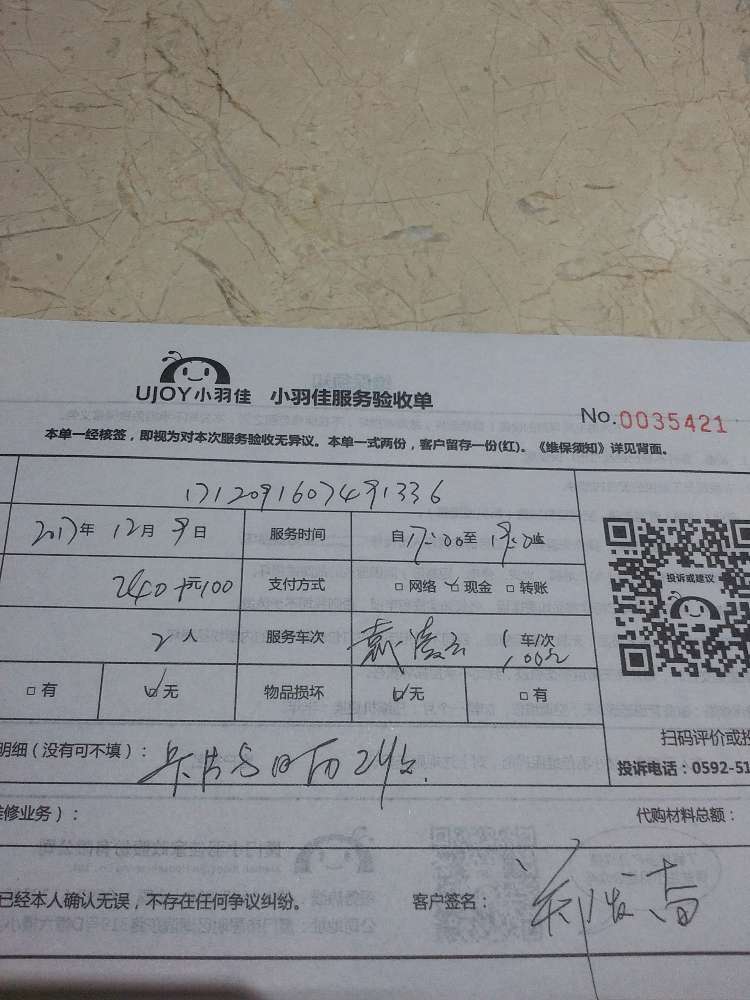 UJOY小羽佳 小羽佳服务验收单
No.0035421
本单一经核签，即视为对本次服务验收无异议。本单一式两份，客户留存一份(红)。《维保须知》详见背面。
1712091607491336
2017年 12月 9日 服务时间 自17:00至
240+100元 支付方式 □ 网络 ☑ 现金 □ 转账
2人 服务车次 1车/次 100元
□ 有 ☑ 无 物品损坏 ☑ 无 □ 有
投诉或建议
扫码评价或投
明细（没有可不填）：
投诉电话：0592-51
维修业务）：
代购材料总额：
已经本人确认无误，不存在任何争议纠纷。 客户签名：